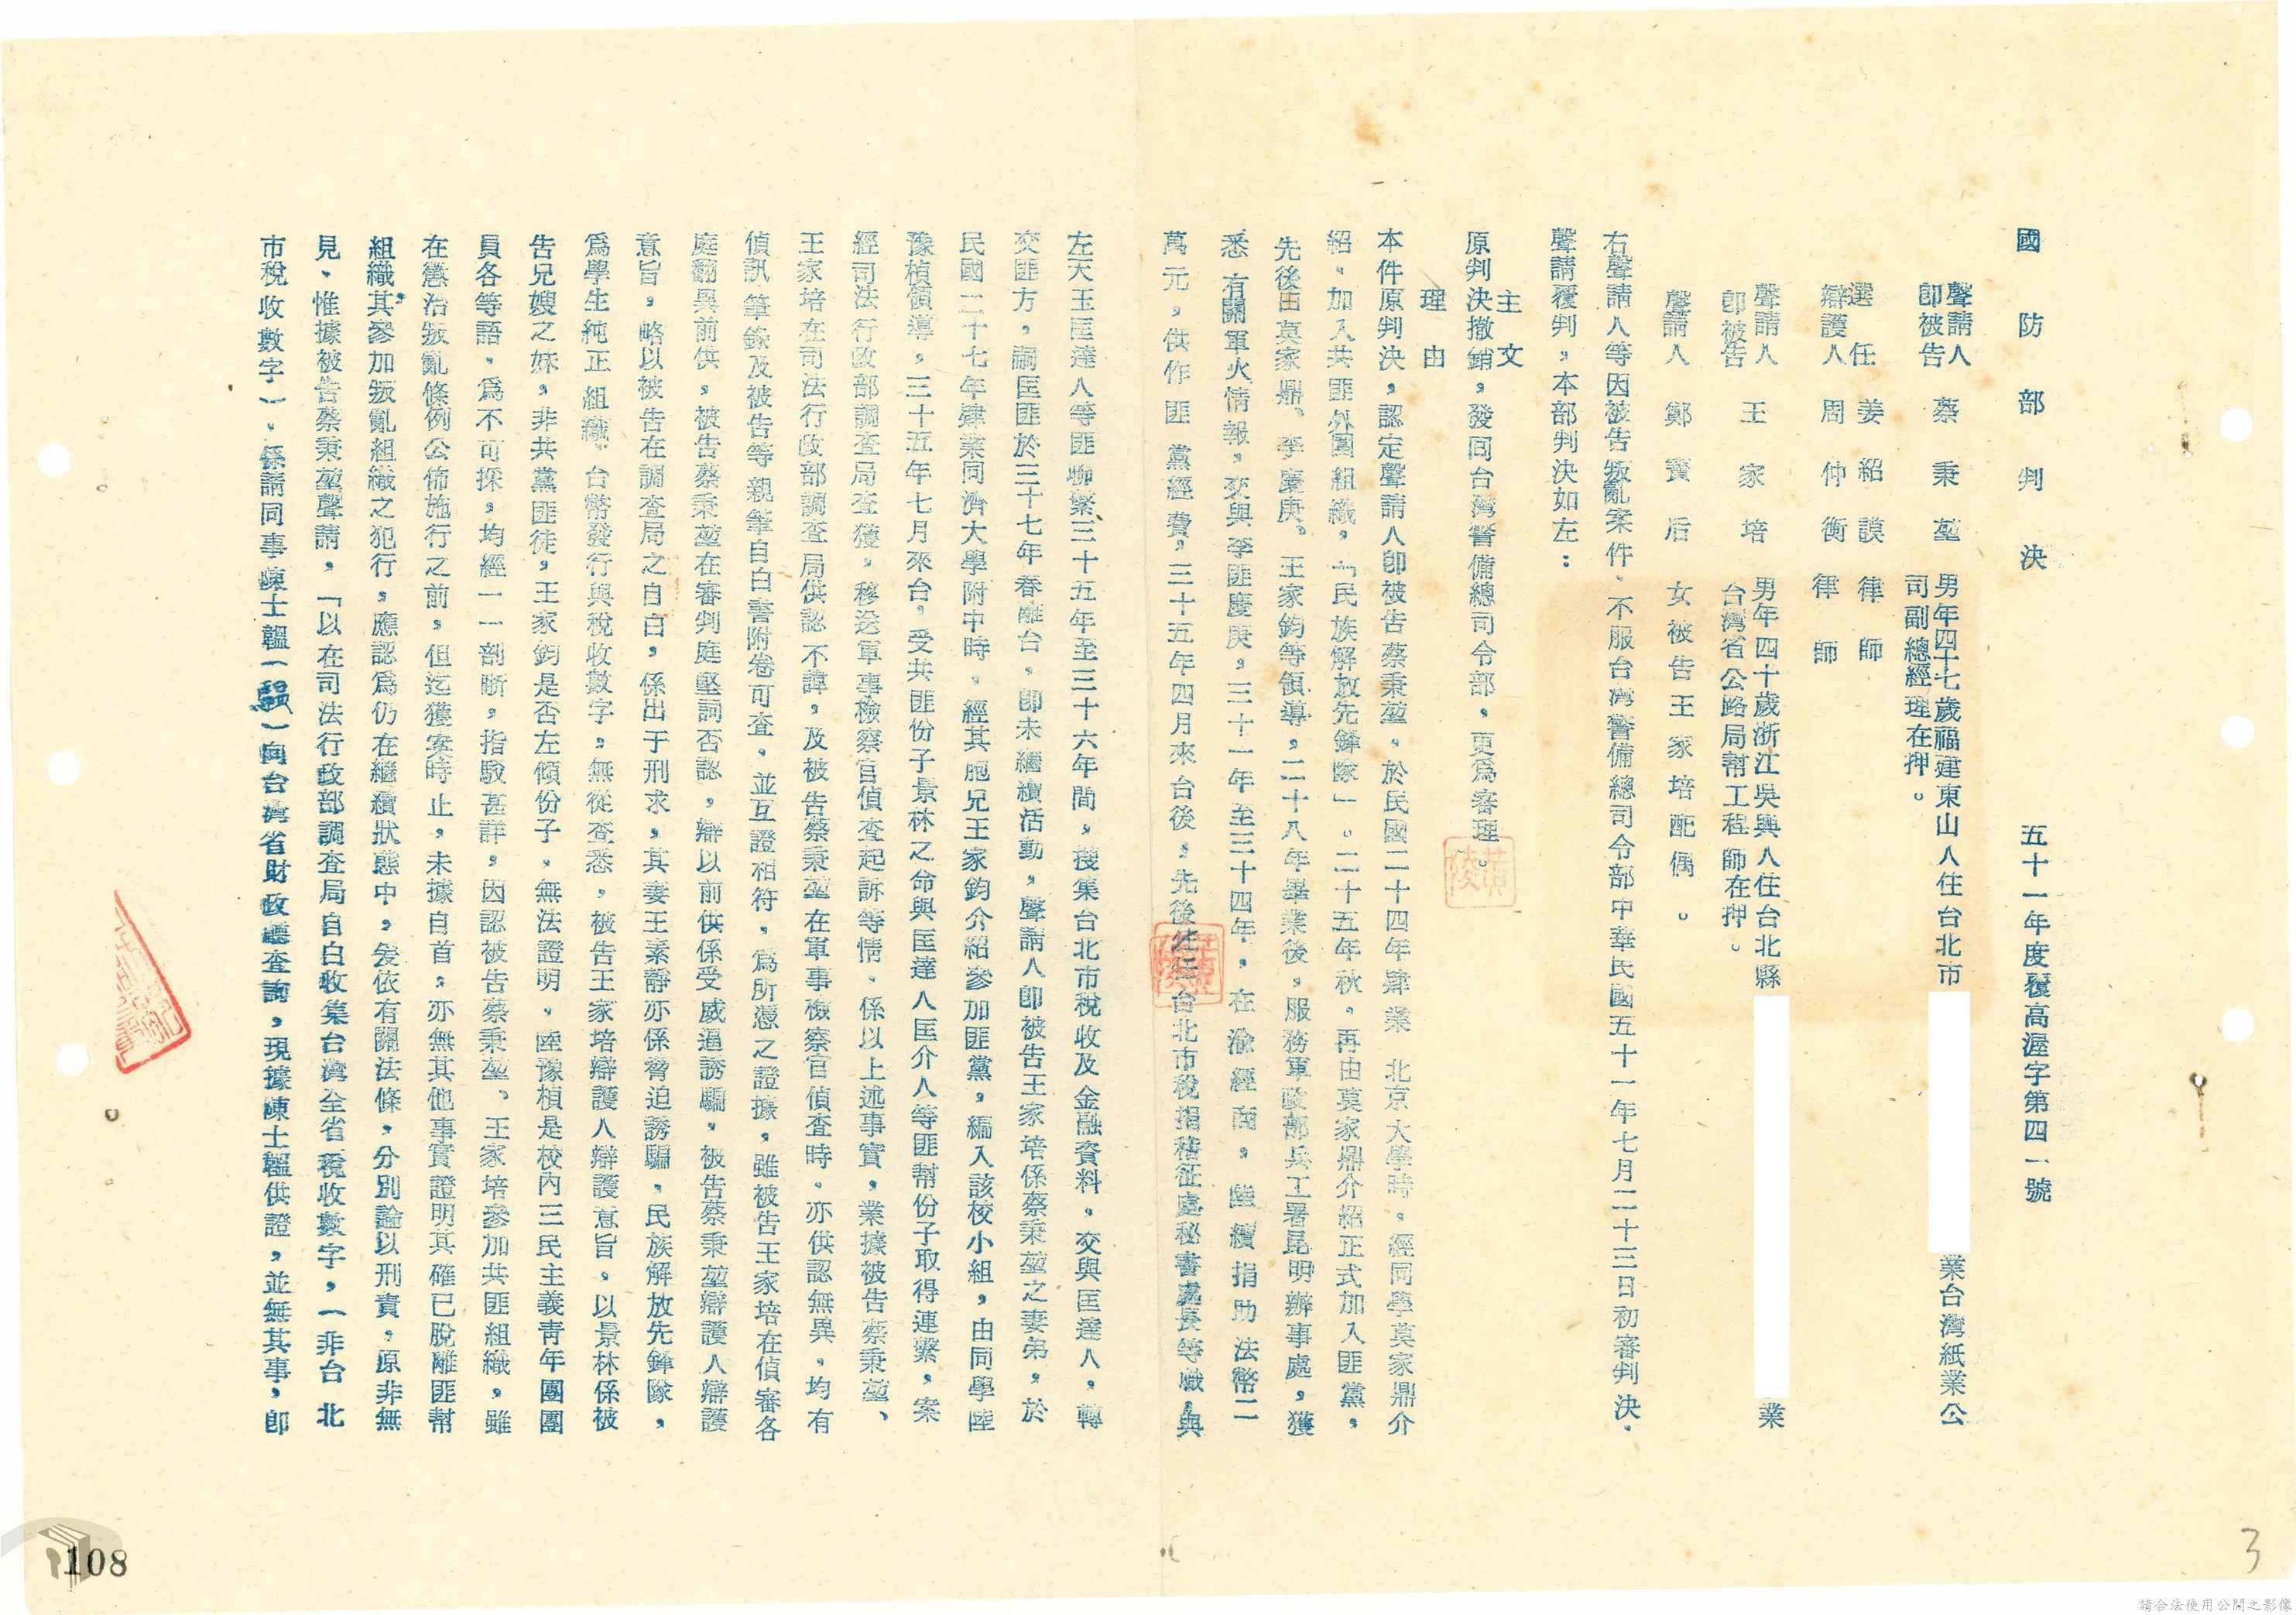 國防部判決
五十一年度覆高渥字第四一號
聲請人
即被告
蔡秉堃
男年四十七歲福建東山人住台北市
業台灣紙業公
司副總經理在押。
選任
辯護人
姜紹謨 律師
周仲衡 律師
聲請人
即被告
王家培
男年四十歲浙江吳興人住台北縣
業
台灣省公路局幫工程師在押。
聲請人 鄭寶后 女被告王家培配偶。
右聲請人等因被告叛亂案件、不服台灣警備總司令部中華民國五十一年七月二十三日初審判決.
聲請覆判,本部判決如左:
主文
原判決撤銷,發回台灣警備總司令部,更為審理。
理由
本件原判決,認定聲請人即被告蔡秉堃,於民國二十四年肄業 北京大學時,經同學莫家鼎介
紹,加入共匪外圍組織,「民族解放先鋒隊」。二十五年秋,再由莫家鼎介紹正式加入匪黨,
先後由莫家鼎、李慶庚、王家鈞等領導,二十八年畢業後,服務軍政部兵工署昆明辦事處,獲
悉有關軍火情報,交與李匪慶庚,三十一年至三十四年,在渝經商,陸續捐助法幣二
萬元,供作匪黨經費,三十五年四月來台後,先後任台北市稅捐稽征處秘書處長等職,與
左天玉匡達人等匪聯繫、三十五年至三十六年間,搜集台北市稅收及金融資料,交與匡達人,轉
交匪方,嗣匡匪於三十七年春離台,即未繼續活動,聲請人即被告王家培係蔡秉堃之妻弟,於
民國二十七年肄業同濟大學附中時,經其胞兄王家鈞介紹參加匪黨,編入該校小組,由同學陸
豫楨領導,三十五年七月來台,受共匪份子景林之命與匡達人匡介人等匪幫份子取得連繫,案
經司法行政部調查局查獲,移送軍事檢察官偵查起訴等情,係以上述事實,業據被告蔡秉堃、
王家培在司法行政部調查局供認不諱,及被告蔡秉堃在軍事檢察官偵查時,亦供認無異,均有
偵訊筆錄及被告等親筆自白書附卷可查,並互證相符,為所憑之證據,雖被告王家培在偵審各
庭翻異前供,被告蔡秉堃在審判庭堅詞否認,辯以前供係受威逼誘騙,被告蔡秉堃辯護人辯護
意旨,略以被告在調查局之自白,係出于刑求,其妻王素靜亦係脅迫誘騙,民族解放先鋒隊,
為學生純正組織,台幣發行與稅收數字,無從查悉,被告王家培辯護人辯護意旨,以景林係被
告兄嫂之妹,非共黨匪徒,王家鈞是否左傾份子,無法證明,陸豫楨是校內三民主義青年團團
員各等語,為不可採,均經一一剖晰,指駁甚詳,因認被告蔡秉堃、王家培參加共匪組織,雖
在懲治叛亂條例公佈施行之前,但迄獲案時止,未據自首,亦無其他事實證明其確已脫離匪幫
組織其參加叛亂組織之犯行,應認為仍在繼續狀態中,爰依有關法條,分別論以刑責,原非無
見、惟據被告蔡秉堃聲請,「以在司法行政部調查局自白收集台灣全省稅收數字,(非台北
市稅收數字),係請同事陳士韞()向台灣省財政廳查詢,現據陳士韞供證,並無其事,即
108
3
請合法使用公開之影像